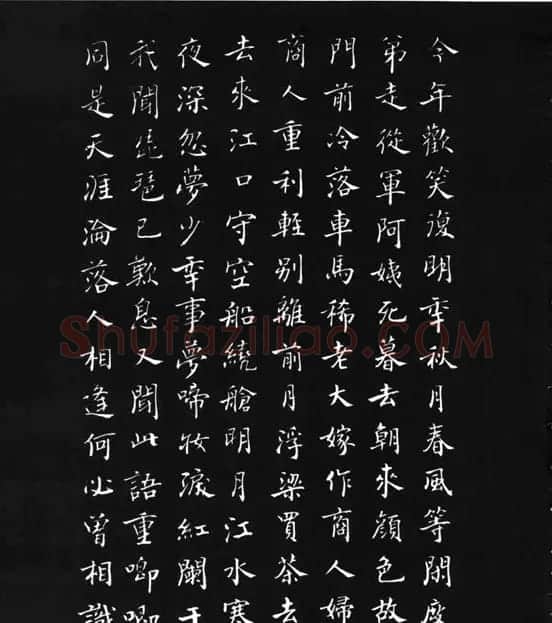 今年歡笑復明年秋月春風等閑度
弟走從軍阿姨死暮去朝來顏色故
門前冷落車馬稀老大嫁作商人婦
商人重利輕别離前月浮梁買茶去
去來江口守空船繞艙明月江水寒
夜深忽夢少年事夢啼妝淚紅闌干
我聞琵琶已歎息又聞此語重唧唧
同是天涯淪落人相逢何必曾相識
Shufaziliao.COM